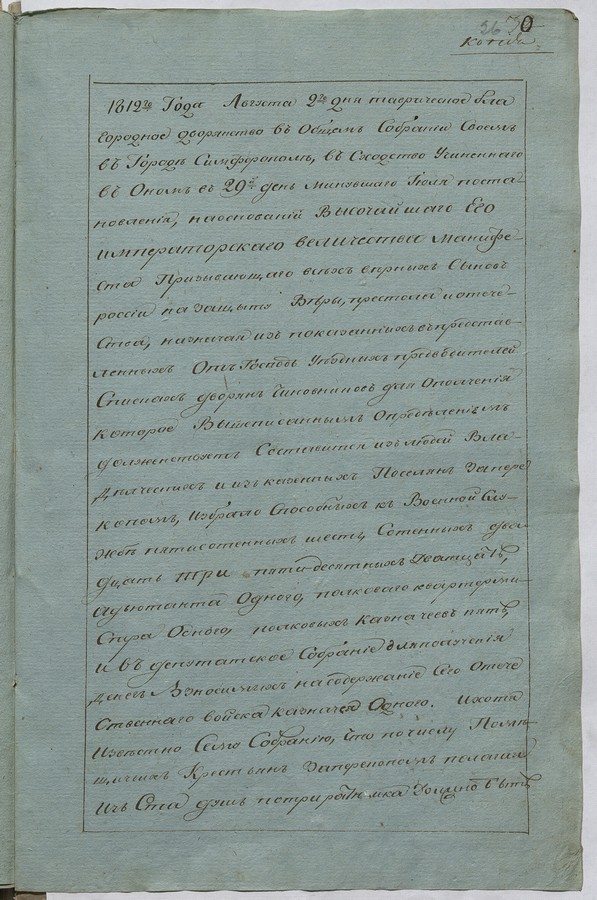 30
Копия
1812го Года Августа 2го дня таврическое бла
городное дворянство въ Общемъ Собраніи Своемъ
въ Городе Симферополе, въ Сходство Учиненнаго
въ Ономъ въ 29й день минувшаго Іюля поста-
новленія, наоснованіи Высочайшаго Его
императорскаго величества манифе-
ста Призывающаго всехъ верныхъ Сыновъ
россіи на защыту Веры, престола и отече-
Ства, назначая изъ показанныхъ въ представ-
ленныхъ Отъ Господъ Уездныхъ предводителей
Спискахъ дворянъ Чиновниковъ для Ополченія
которое Вышеписаннымъ Определеніемъ
долженствуетъ Составится изъ людей Вла-
дельческихъ и изъ казенныхъ Поселянъ Запере
копомъ, Избрало Способныхъ къ Военной Слу-
жбе пятисотенныхъ шесть, Сотенныхъ два-
дцать три пятидесятныхъ Двадцать,
адъютанта Одного, полковаго квартерми-
стра Одного, полковыхъ Казначеевъ пять,
и въ депутатское Собраніе для полученія
Денегъ Взносимыхъ на содержаніе Сего Отече
Ственнаго войска казначея Одного. Ихотя
Известно Сему Собранію, что по числу Поме-
щичьихъ Крестьянъ Заперекопомъ полагая
Изъ Ста душъ по три ратника Должно быть